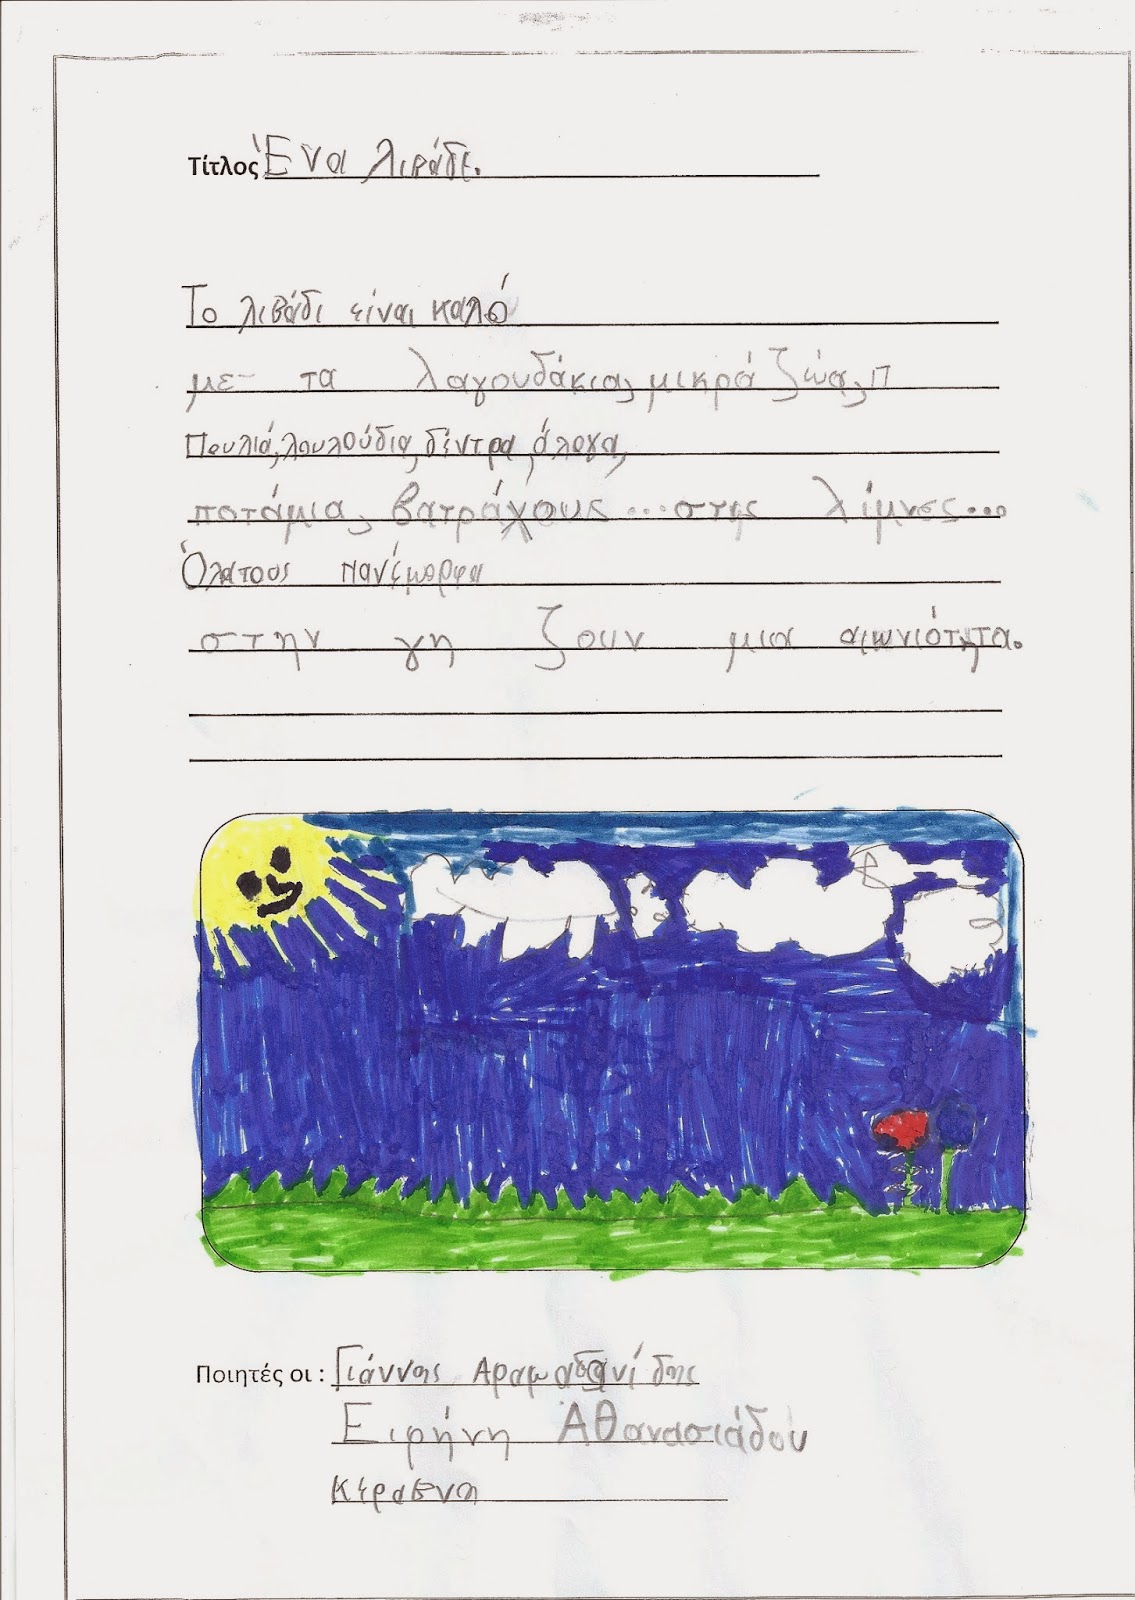 Τίτλος Ένα λιβάδι.
Το λιβάδι είναι καλό
με- τα λαγουδάκια, μικρά ζώα, π
Πουλιά, λουλούδια, δέντρα, άλογα,
ποτάμια, βατράχους...στης λίμνες...
Όλατους πανέμορφα
στην γη ζουν μια αιωνιότητα.
Ποιητές οι : Γιάννης
Ειρήνη Αθανασιάδου